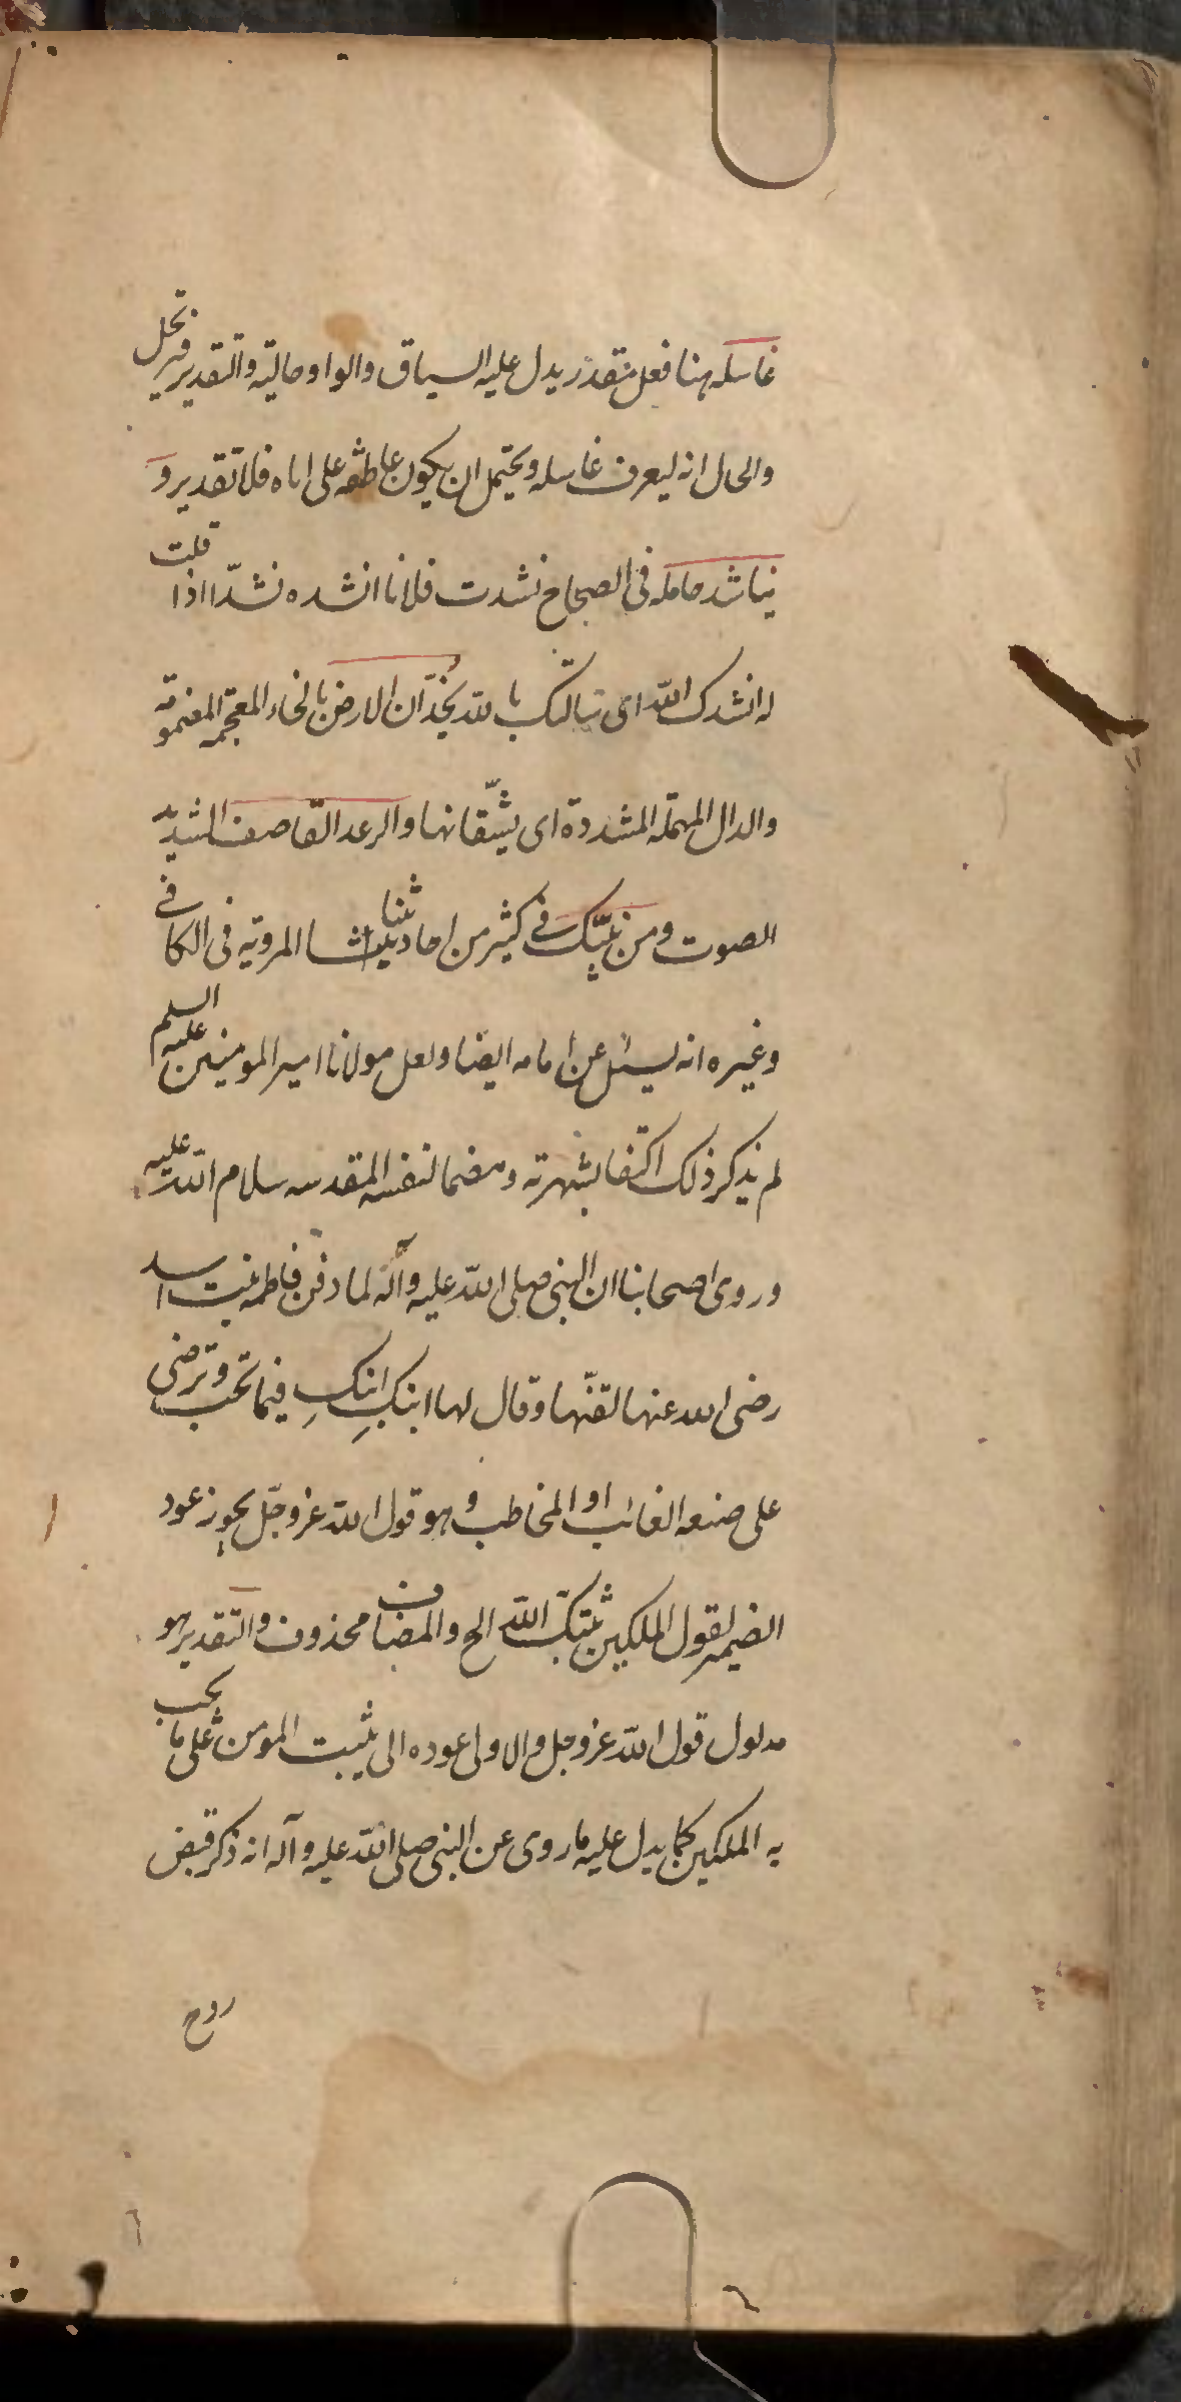 غاسله هنا فعل مقدر يدل عليه السياق والواو حالية والتقدير فيرتحل
والحال انه ليعرف غاسله ويحتمل ان يكون عاطفه على اتاه فلا تقدير و
يناشد حامله فى الصحاح نشدت فلانا انشده نشدّا اذا قلت
له انشدك الله اى سالتك بالله يخدّان الارض بالخاء المعجمه المضمومة
والدال المهمله المشددة اى يشقّانها والرعد القاصف الشديد
الصوت ومن نبيّك فى كثير من احاديثنا المروية فى الكافى
وغيره انه يسئل عن امامه ايضا ولعل مولانا امير المومنين عليه السلم
لم يذكر ذلك اكتفا بشهرته وهضما لنفسه المقدسه سلام الله عليه
وروى اصحابنا ان النبى صلى الله عليه وآله لما دفن فاطمه بنت اسد
رضى الله عنها لقّنها وقال لها ابنكِ ابنكِ فيما تحب وترضى
على صيغه الغائب او المخاطب وهو قول الله عز وجلّ يجوز عود
الضمير لقول الملكين ثبّتك الله الخ والمضاف محذوف والتقدير هو
مدلول قول الله عز وجل والاولى عوده الى تثبيت المومن على ما يجيب
به الملكين كما يدل عليه ما روى عن النبى صلى الله عليه وآله انه ذكر قبض
روح